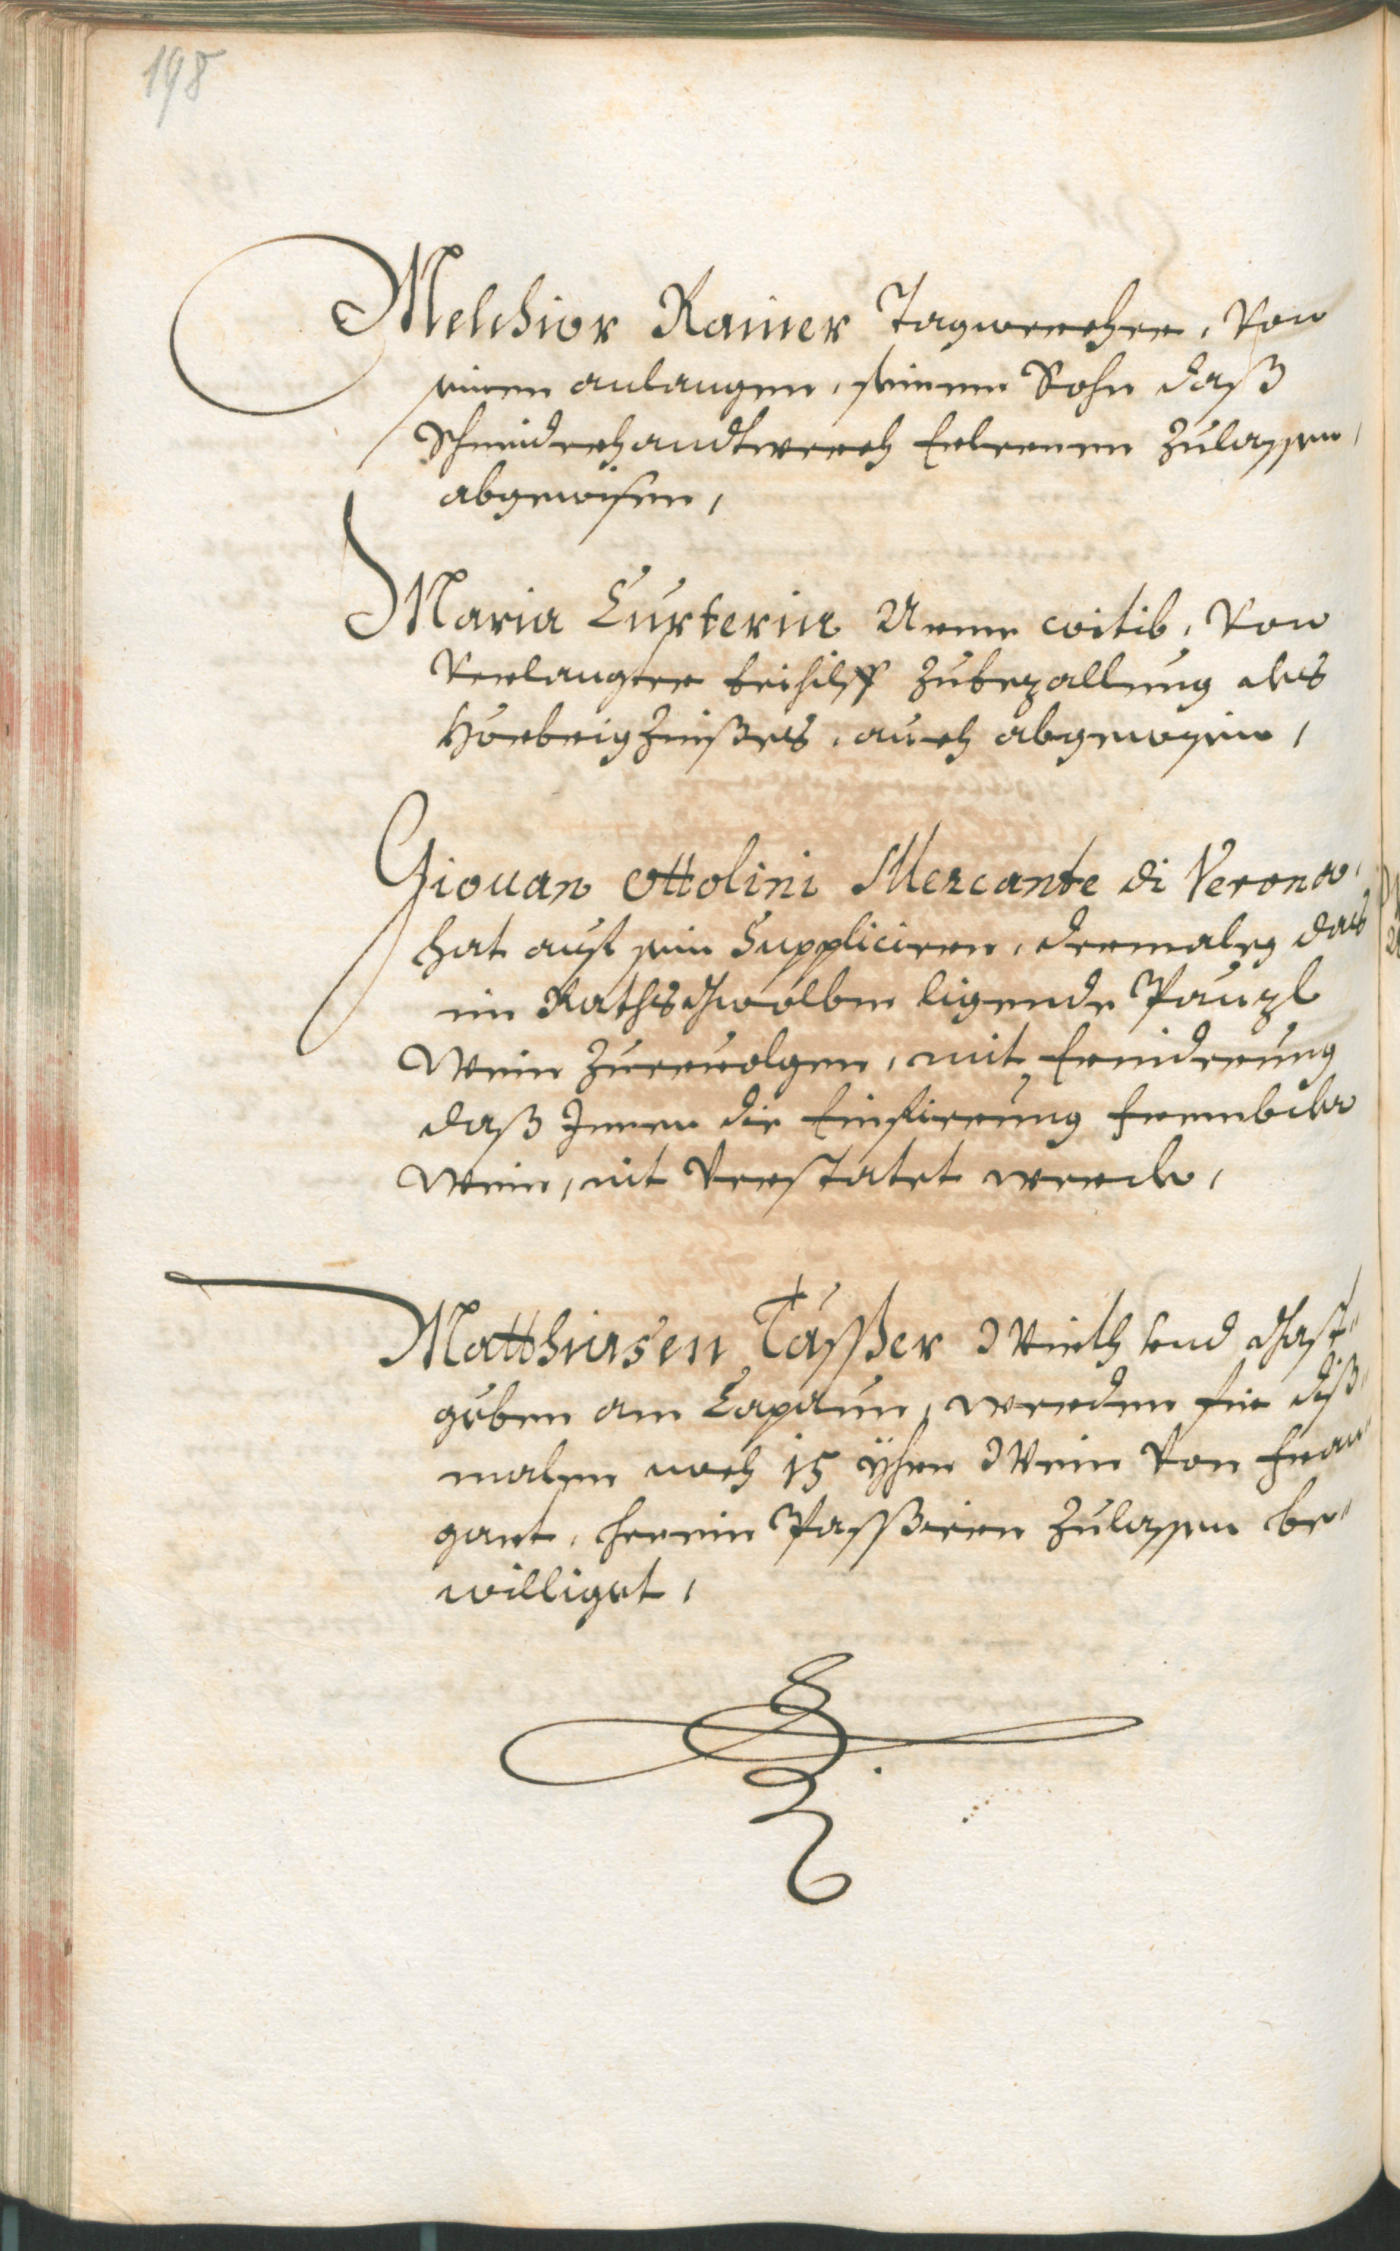 198
Melchior Rainer Tagwercher, von
seinen anlangen, seinem Sohn daß
Schneiderhandtwerch Erlernen zulassen,
abgewisen,
Maria Curterin Arme witib, von
verlangter beihilff zubezallung des
Hörbrigzinßes, auch abgewisen,
Giouan Ottolini Mercante di Verona,
hat auf sein Suppliciren, dermaleg das
im Rathsgwölben ligende Panzl
Wein zuervolgen, mit Erinderung
daß Jnnen die Einfierung frembder
Wein, nit verstatet werde,
Matthiasen Täßer Wirth und Gast„
geben am Capaun, werden für diß„
malen noch 15 Yhrn Wein von Fran„
gart, herein Passieren zulassen be„
williget,